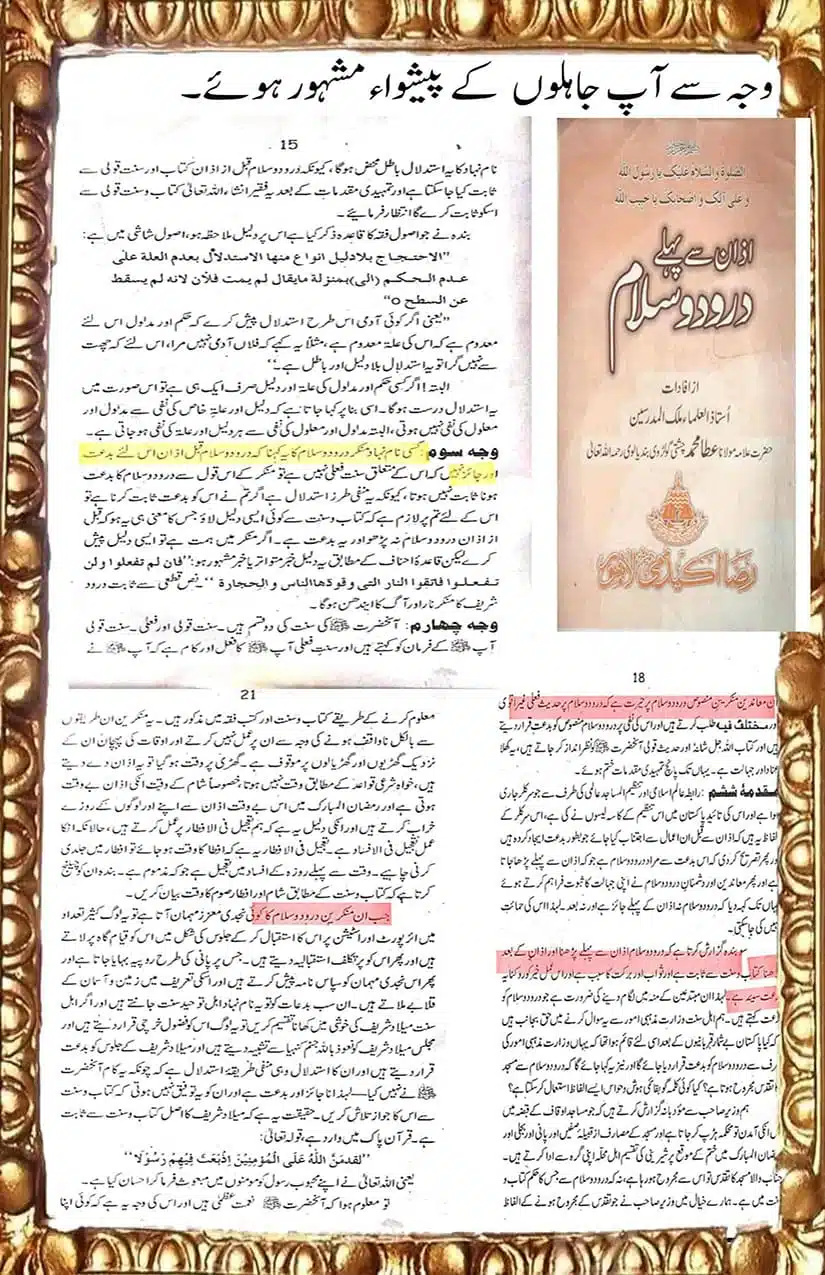 وجہ سے آپ جاہلوں کے پیشواء مشہور ہوئے۔
15
نام نہاد کا یہ استدلال باطل محض ہوگا، کیونکہ درود و سلام قبل از اذان کتاب اور سنت قولی سے
ثابت کیا جا سکتا ہے اور تمہیدی مقدمات کے بعد یہ فقیر انشاء اللہ تعالیٰ کتاب و سنت سے
اسکو ثابت کرے گا انتظار فرمایئے۔
بندہ نے جو اصول فقہ کا قاعدہ ذکر کیا ہے اس پر دلیل ملاحظہ ہو، اصول شاشی میں ہے:
"الاحتجاج بلادلیل انواع منها الاستدلال بعدم العلة علی
عدم الحکم (الی) بمنزلة مایقال لم یمت فلان لانه لم یسقط
عن السطح o"
"یعنی اگر کوئی آدمی اس طرح استدلال پیش کرے کہ حکم اور مدلول اس لئے
معدوم ہے کہ اس کی علۃ معدوم ہے، مثلاً یہ کہے کہ فلاں آدمی نہیں مرا، اس لئے کہ چھت
سے نہیں گرا تو یہ استدلال بلا دلیل اور باطل ہے۔"
البتہ! اگر کسی حکم اور مدلول کی علۃ اور دلیل صرف ایک ہی ہے تو اس صورت میں
یہ استدلال درست ہوگا۔ اسی بنا پر کہا جاتا ہے کہ دلیل اور علۃ خاص کی نفی سے مدلول اور
معلول کی نفی نہیں ہوتی، البتہ مدلول اور معلول کی نفی سے ہر دلیل اور علۃ کی نفی ہو جاتی ہے۔
وجہ سوم: کسی نام نہاد منکر درود و سلام کا یہ کہنا کہ درود و سلام قبل اذان اس لئے بدعت
اور جائز نہیں کہ اس کے متعلق سنت فعلی نہیں ہے تو منکر کے اس قول سے درود و سلام کا بدعت
ہونا ثابت نہیں ہوتا، کیونکہ یہ منفی طرز استدلال ہے اگر تم نے اس کو بدعت ثابت کرنا ہے تو
اس کے لئے تم پر لازم ہے کہ کتاب و سنت سے کوئی ایسی دلیل لاؤ جس کا معنی ہی یہ ہو کہ قبل
از اذان درود و سلام نہ پڑھو اور یہ بدعت ہے۔ اگر منکر میں ہمت ہے تو ایسی دلیل پیش
کرے لیکن قاعدۂ احناف کے مطابق یہ دلیل خبر متواتر یا خبر مشہور ہو: "فان لم تفعلوا ولن
تفعلوا فاتقوا النار التی وقودها الناس والحجارة"۔ نص قطعی سے ثابت درود
شریف کا منکر نار اور آگ کا ایندھن ہوگا۔
وجہ چہارم: آنحضرت ﷺ کی سنت کی دو قسم ہیں۔ سنت قولی اور فعلی۔ سنت قولی
آپ ﷺ کے فرمان کو کہتے ہیں اور سنتِ فعلی آپ ﷺ کا فعل اور کام ہے کہ آپ ﷺ نے
الصلوٰة والسلام علیک یا رسول اللہ
و علی آلک و اصحابک یا حبیب اللہ
اذان سے پہلے
درود و سلام
از افادات
اُستاذ العلماء ملک المدرسین
حضرت علامہ مولانا عطا محمد چشتی گولڑوی بندیالوی رحمہ اللہ تعالیٰ
رضا اکیڈمی لاہور
18
ان معاندین منکرین منصوص درود و سلام پر حیرت ہے کہ درود و سلام پر حدیث فعلی غیر اقوی
اور مختلف فیہ طلب کرتے ہیں اور اس کی نفی پر درود و سلام منصوص کو بدعت قرار دیتے
ہیں اور کتاب اللہ جل شانہ اور حدیث قولی آنحضرت ﷺ کو نظر انداز کر جاتے ہیں، یہ کھلا
عناد اور جہالت ہے۔ یہاں تک پانچ تمہیدی مقدمات ختم ہوئے۔
مقدمۂ ششم: رابطہ عالم اسلامی اور تنظیم المساجد عالمی کی طرف سے جو سرکلر جاری
ہوا ہے اور اس کی تائید پاکستان میں اس تنظیم کے کاسہ لیسوں نے کی ہے، اس سرکلر کے
الفاظ یہ ہیں کہ اذان سے قبل ان اعمال سے اجتناب کیا جائے جو بطور بدعت ایجاد کردہ ہیں
اور پھر تصریح کردی کہ اس بدعت سے مراد درود و سلام ہے جو کہ اذان سے پہلے پڑھا جاتا
ہے اور پھر معاندین اور دشمنان درود و سلام نے اپنی جہالت کا ثبوت فراہم کرتے ہوئے
یہاں تک کہہ دیا کہ درود و سلام نہ اذان کے پہلے جائز ہے اور نہ بعد۔ لہٰذا اس کی حمایت
نہیں کی جاسکتی۔
سو بندہ گزارش کرتا ہے کہ درود و سلام اذان سے پہلے پڑھنا اور اذان کے بعد
پڑھنا کتاب و سنت سے ثابت ہے اور ثواب اور برکت کا سبب ہے اور اس عمل خیر کو روکنا یہ
بدعت سیئہ ہے۔ لہٰذا ان مبتدعین کے منہ میں لگام دینے کی ضرورت ہے جو درود و سلام کو
بدعت کہتے ہیں۔ ہم اہل سنت وزارت مذہبی امور سے یہ سوال کرنے میں حق بجانب ہیں
کہ کیا پاکستان بے شمار قربانیوں کے بعد اسی لئے قائم ہوا تھا کہ یہاں وزارت مذہبی امور کی
طرف سے درود و سلام کو بدعت قرار دیا جائے گا اور نیز یہ کہا جائے گا کہ درود و سلام سے مسجد
کا تقدس مجروح ہوتا ہے؟ کیا کوئی کلمہ گو بقائمی ہوش و حواس ایسے الفاظ استعمال کرسکتا ہے؟
ہم وزیر صاحب سے مؤدبانہ گزارش کرتے ہیں کہ جو مساجد اوقاف کے قبضہ میں
ہیں انکی آمدن تو محکمہ ہڑپ کر جاتا ہے اور مسجد کے مصارف از قبیلہ صفیں اور پانی اور بجلی اور
رمضان المبارک میں ختم کے موقع پر شیرینی کی تقسیم اہل محلہ اپنی گرہ سے ادا کرتے ہیں۔
جناب والا مسجد کا تقدس تو اس سے مجروح ہو رہا ہے، نہ کہ درود و سلام سے جس کا حکم کتاب و
سنت میں ہے۔ ہمارے خیال میں وزیر صاحب نے جو تقدس کے مجروح ہونے کے الفاظ
21
معلوم کرنے کے طریقے کتاب و سنت اور کتب فقہ میں مذکور ہیں۔ یہ منکرین ان طریقوں
سے بالکل ناواقف ہونے کی وجہ سے ان پر عمل نہیں کرتے اور اوقات کی پہچان ان کے
نزدیک گھڑیوں اور گھڑیالوں پر موقوف ہے۔ گھڑی پر وقت ہوگیا تو یہ اذان دے دیتے
ہیں، خواہ شرعی قواعد کے مطابق وقت نہیں ہوتا، بالخصوص شام کے وقت انکی اذان بے وقت
ہوتی ہے اور رمضان المبارک میں اس بے وقت اذان سے اپنے اور لوگوں کے روزے
خراب کرتے ہیں اور انکی دلیل یہ ہے کہ ہم تعجیل فی الافطار پر عمل کرتے ہیں، حالانکہ انکا
عمل تعجیل فی الافساد ہے۔ تعجیل فی الافطار یہ ہے کہ افطار کا وقت ہو جائے تو افطار میں جلدی
کرنی چاہیے۔ وقت سے پہلے روزہ کے افساد میں تعجیل ہے جو کہ مذموم ہے۔ بندہ ان کو چیلنج
کرتا ہے کہ کتاب و سنت کے مطابق شام اور افطار صوم کا وقت بیان کریں۔
جب ان منکرین درود و سلام کا کوئی نجدی معزز مہمان آتا ہے تو یہ لوگ کثیر تعداد
میں ائرپورٹ اور اسٹیشن پر اس کا استقبال کر کے جلوس کی شکل میں اس کو قیام گاہ پر لاتے
ہیں اور پھر اس کو پر تکلف استقبالیہ دیتے ہیں۔ جس پر پانی کی طرح روپیہ بہایا جاتا ہے اور
پھر اس نجدی مہمان کو سپاس نامہ پیش کرتے ہیں اور اسکی تعریف میں زمین و آسمان کے
قلابے ملاتے ہیں۔ ان سب بدعات کو تو یہ نام نہاد اہل توحید سنت جانتے ہیں اور اگر اہل
سنت میلاد شریف کی خوشی میں کھانا تقسیم کریں تو یہ لوگ اس کو فضول خرچی قرار دیتے ہیں اور
مجلس میلاد شریف کو نعوذ باللہ جنم کنہیا سے تشبیہ دیتے ہیں اور میلاد شریف کے جلوس کو بدعت
قرار دیتے ہیں اور ان کا استدلال وہی منفی طریقہ استدلال ہے کہ چونکہ یہ کام آپ
ﷺ نے نہیں کیا۔ لہٰذا ناجائز اور بدعت ہے اور ان کو یہ توفیق نہیں ہوتی کہ کتاب و سنت
سے اس کا جواز تلاش کریں۔ حقیقت یہ ہے کہ میلاد شریف کا اصل کتاب و سنت سے ثابت
ہے۔ قرآن پاک میں وارد ہے، قولہ تعالیٰ:
"لَقَدْمَنَّ اللّٰهُ عَلَى الْمُؤْمِنِيْنَ اِذْبَعَثَ فِيْهِمْ رَسُوْلًا"
یعنی اللہ تعالیٰ نے اپنے محبوب رسول کو مومنوں میں مبعوث فرما کر احسان کیا ہے۔
تو معلوم ہوا کہ آنحضرت ﷺ نعمت عظمیٰ ہیں اور اس کی وجہ یہ ہے کہ کوئی اپنا